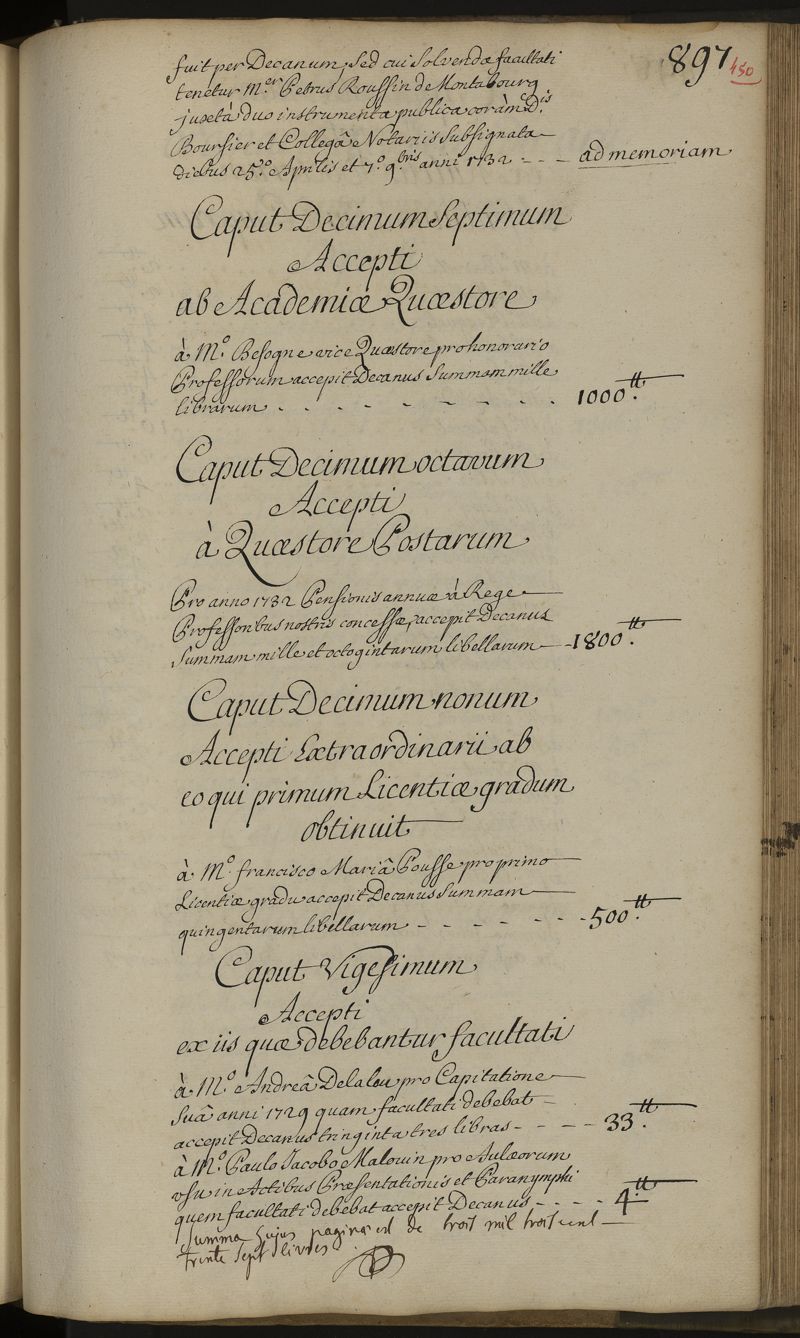 897
450
fuit per Decanum, sed cui solvendæ facultati
tenetur M.er Petrus Roussin de Montabourg
juxtà duo instrumenta publica coràm D.is
Boursier et Collegâ Notariis subsignata
diebus 25.º Aprilis et 7.º 9.bris anni 1732 - - - ad memoriam
Caput Decimum Septimum
Accepti
ab Academiæ Quæstore
à M.º Besogne vice Quæstore pro honorario
Professorum accepit Decanus Summam mille
librarum - - - - - - - - - - 1000.tt
Caput Decimum octavum
Accepti
à Quæstore Postarum
Pro anno 1732 Pensionis annuæ à Rege
Professoribus nostris concessæ, accepit Decanus
Summam mille et octogintarum libellarum - 1800.tt
Caput Decimum nonum
Accepti Extraordinarii ab
eo qui primum Licentiæ gradum
obtinuit
à M.º francisco Mariâ Pousse pro primo
Licentiæ gradu accepit Decanus Summam
quingentarum libellarum - - - - - - - 500.tt
Caput Vigesimum
Accepti
ex iis quæ debebantur facultati
à M.º Andreâ Delaleu pro Capitatione
Suâ anni 1729 quam facultati debebat
accepit Decanus tringinta tres libras - - - - 33.tt
à M.º Paulo Jacobo Malouin pro Aulæorum
usu in Actibus Præsentationis et Paranymphi
quem facultati debebat accepit Decanus - - - - 4.tt
Summa hujus paginæ est de trois mil trois cent
trente sept livres